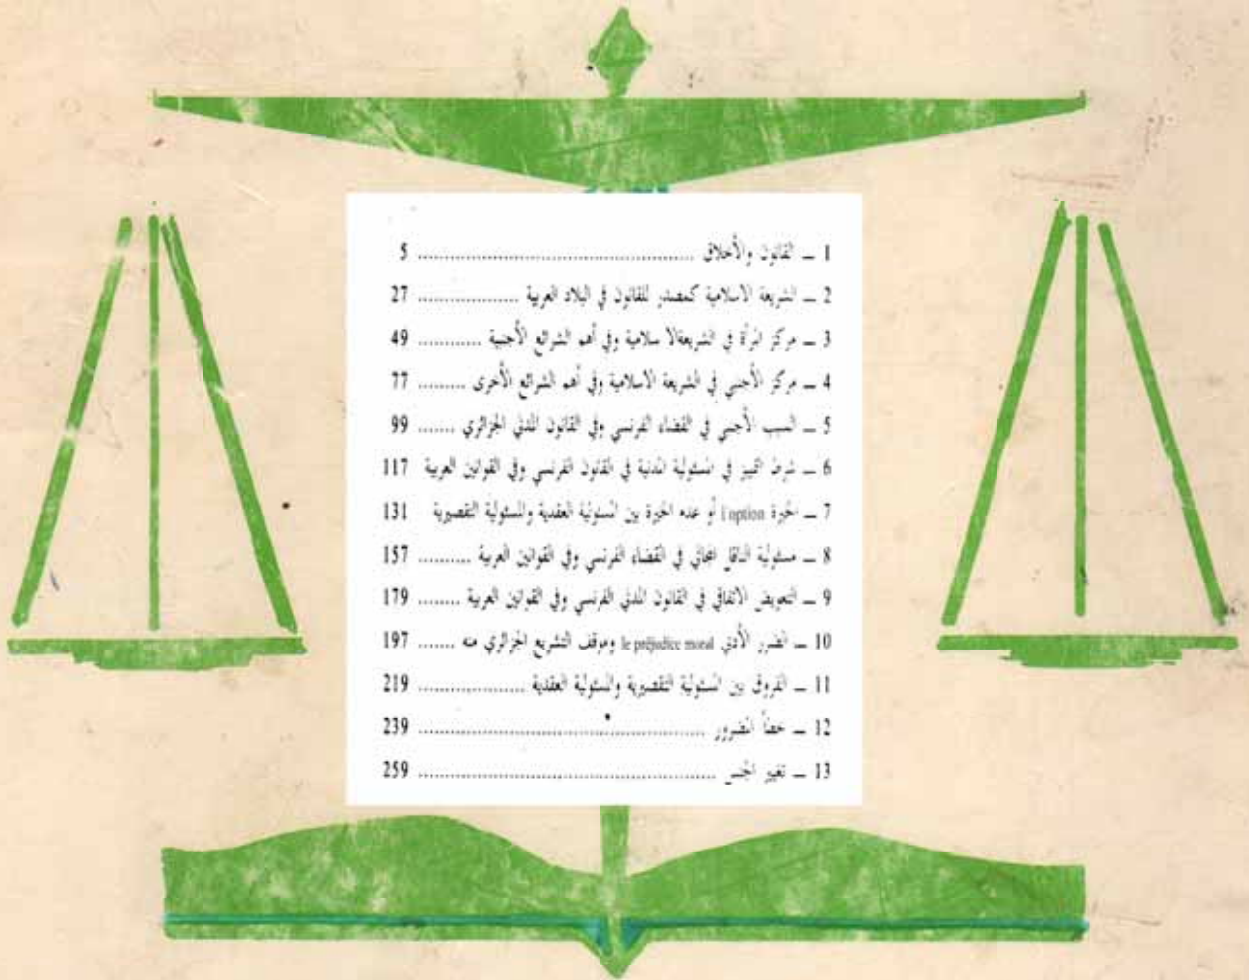 1 ــ القانون والأخلاق ................................................ 5
2 ــ الشريعة الاسلامية كمصدر للقانون في البلاد العربية ................... 27
3 ــ مركز المرأة في الشريعةالا سلامية وفي أهم الشرائع الأجنبية ............ 49
4 ــ مركز الأجنبي في الشريعة الاسلامية وفي أهم الشرائع الأخرى ......... 77
5 ــ السبب الأجنبي في القضاء الفرنسي وفي القانون المدني الجزائري ....... 99
6 ــ شرط التمييز في المسئولية المدنية في القانون الفرنسي وفي القوانين العربية 117
7 ــ الخيرة l'option أو عدم الخيرة بين المسئولية العقدية والمسئولية التقصيرية 131
8 ــ مسئولية الناقل المجاني في القضاء الفرنسي وفي القوانين العربية .......... 157
9 ــ التعويض الاتفاقي في القانون المدني الفرنسي وفي القوانين العربية ........ 179
10 ــ الضرر الأدبي le préjudice moral وموقف التشريع الجزائري منه ....... 197
11 ــ الفروق بين المسئولية التقصيرية والمسئولية العقدية .................... 219
12 ــ خطأ المضرور .................................................. 239
13 ــ تغيير الجنس .................................................. 259